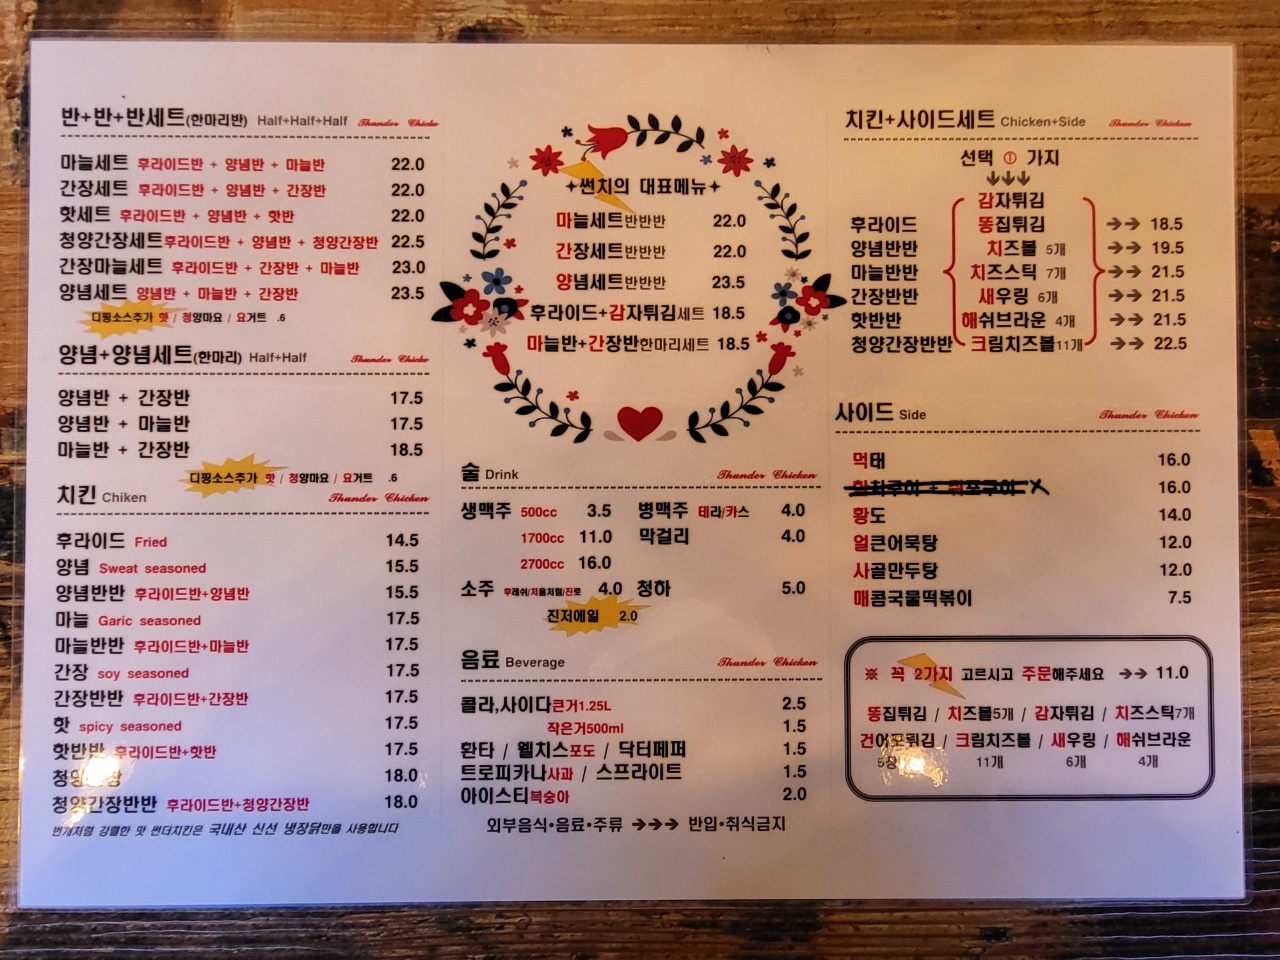 반+반+반세트(한마리반) Half+Half+Half Thunder Chicke
마늘세트 후라이드반 + 양념반 + 마늘반 22.0
간장세트 후라이드반 + 양념반 + 간장반 22.0
핫세트 후라이드반 + 양념반 + 핫반 22.0
청양간장세트 후라이드반 + 양념반 + 청양간장반 22.5
간장마늘세트 후라이드반 + 간장반 + 마늘반 23.0
양념세트 양념반 + 마늘반 + 간장반 23.5
디핑소스추가 핫 / 청양마요 / 요거트 .6
양념+양념세트(한마리) Half+Half Thunder Chicke
양념반 + 간장반 17.5
양념반 + 마늘반 17.5
마늘반 + 간장반 18.5
디핑소스추가 핫 / 청양마요 / 요거트 .6
치킨 Chiken Thunder Chicken
후라이드 Fried 14.5
양념 Sweat seasoned 15.5
양념반반 후라이드반+양념반 15.5
마늘 Garic seasoned 17.5
마늘반반 후라이드반+마늘반 17.5
간장 soy seasoned 17.5
간장반반 후라이드반+간장반 17.5
핫 spicy seasoned 17.5
핫반반 후라이드반+핫반 17.5
18.0
청양간장반반 후라이드반+청양간장반 18.0
번개처럼 강렬한 맛 썬더치킨은 국내산 신선 냉장닭만을 사용합니다
썬치의 대표메뉴
마늘세트반반반 22.0
간장세트반반반 22.0
양념세트반반반 23.5
후라이드+감자튀김세트 18.5
마늘반+간장반한마리세트 18.5
술 Drink Thunder Chicken
생맥주 500cc 3.5 병맥주 테라/카스 4.0
1700cc 11.0 막걸리 4.0
2700cc 16.0
소주 후레쉬/처음처럼/진로 4.0 청하 5.0
진저에일 2.0
음료 Beverage Thunder Chicken
콜라,사이다큰거1.25L 2.5
작은거500ml 1.5
환타 / 웰치스포도 / 닥터페퍼 1.5
트로피카나사과 / 스프라이트 1.5
아이스티복숭아 2.0
외부음식•음료•주류 →→→ 반입•취식금지
치킨+사이드세트 Chicken+Side Thunder Chicken
선택 ① 가지
↓↓↓
감자튀김
후라이드 똥집튀김 →→ 18.5
양념반반 치즈볼 5개 →→ 19.5
마늘반반 치즈스틱 7개 →→ 21.5
간장반반 새우링 6개 →→ 21.5
핫반반 해쉬브라운 4개 →→ 21.5
청양간장반반 크림치즈볼11개 →→ 22.5
사이드 Side Thunder Chicken
먹태 16.0
16.0
황도 14.0
얼큰어묵탕 12.0
사골만두탕 12.0
매콤국물떡볶이 7.5
※ 꼭 2가지 고르시고 주문해주세요 →→ 11.0
똥집튀김 / 치즈볼5개 / 감자튀김 / 치즈스틱7개
건어포튀김 / 크림치즈볼 / 새우링 / 해쉬브라운
11개 6개 4개